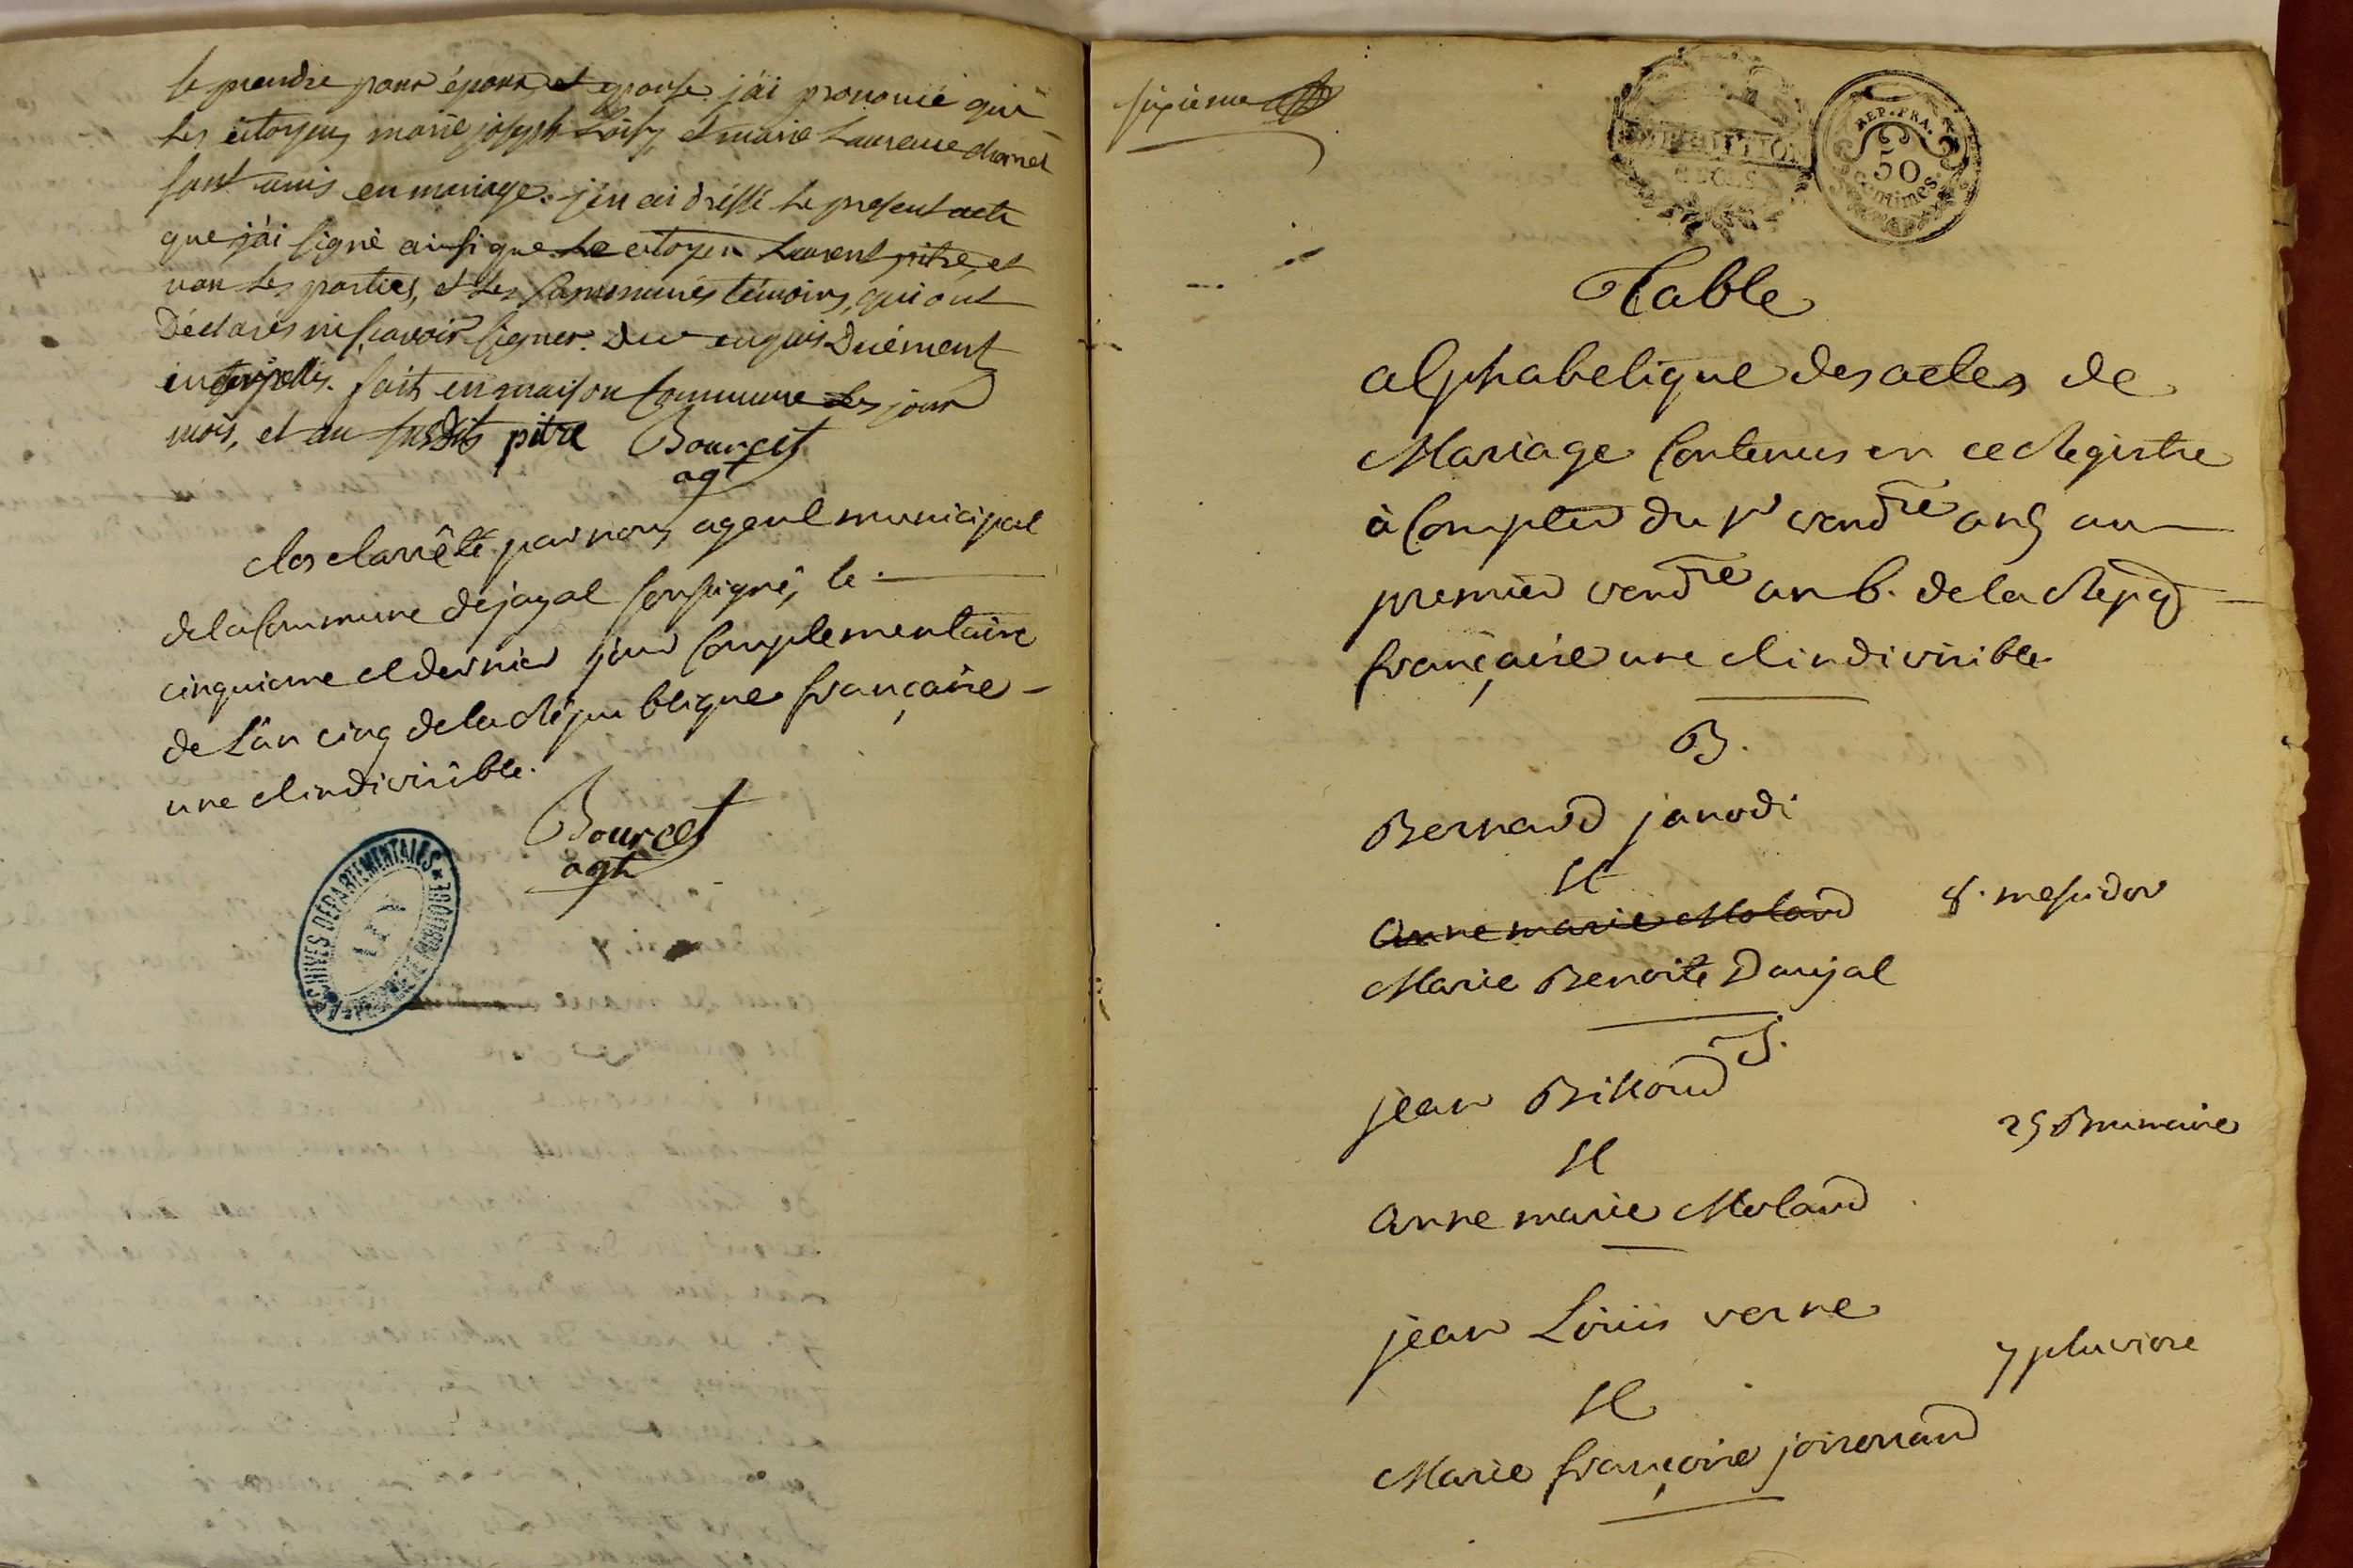 se prendre pour époux, et epouse. j'ai prononcé que
les citoyens marie joseph Loisy, et marie Laurence
sont unis en mariage. j'en ai dréssé le present acte
que j'ai signé ainsi que le citoyen Laurent pitre, et
non les parties, et les susnommés témoins, qui ont
Déclarés ne sçavoir signer. De ce enquis Duëment
interpellés. fait en maison Commune les jour
mois, et an susdits pitre Bourcet
agt
clos et arrêté par nous agent municipal
de la Commune de jayal soussigné, le
cinquieme et dernier jour Complementaire
de L'an cinq de la République française
une et indivisible.
Bourcet
agt
ARCHIVES DÉPARTEMENTALES
AIN
sixieme
REP. FRA.
50
centimes
Table
alphabetique des actes de
Mariage Contenus en ce Registre
à Compter du 1er vendre an 5 au
premier vendre an 6. de la Repq
française une et indivisible
B.
Bernard janodi
et
anne marie Molard
8. messidor
Marie Benoite Daujal
J.
jean Billoud
25 Brumaire
et
anne marie Molard
jean Louis verne
7 pluviose
et
Marie françoise